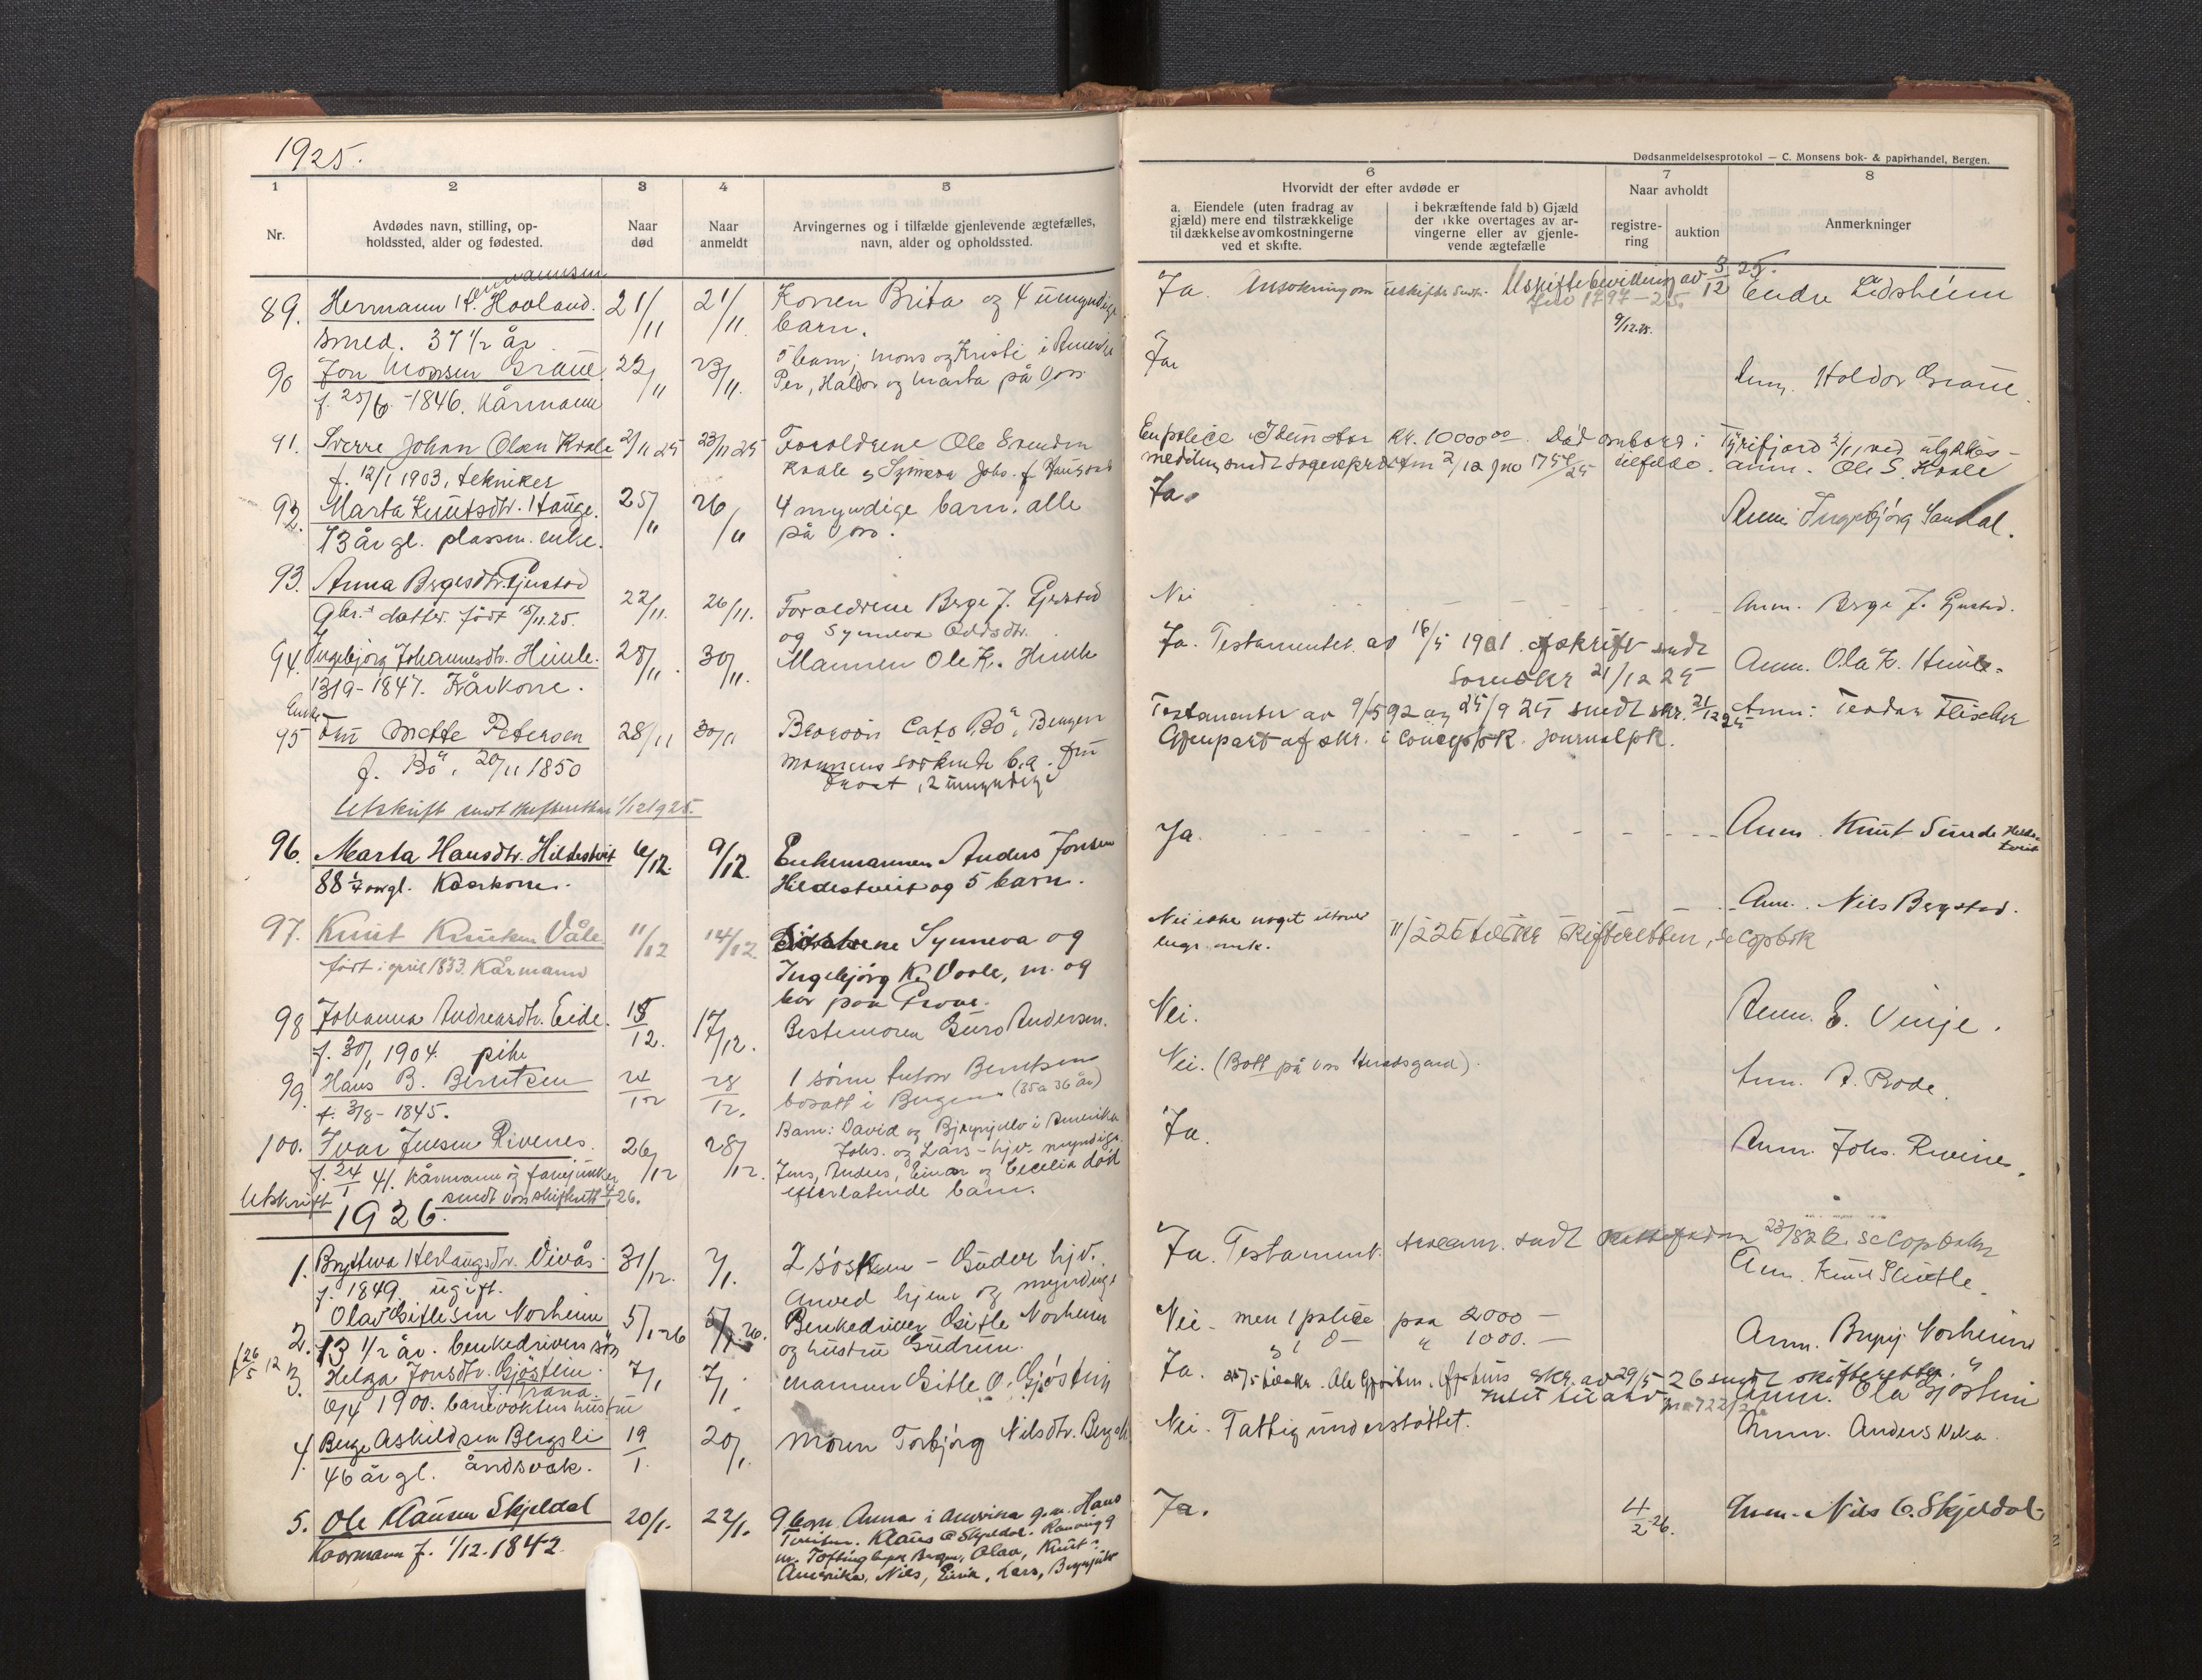 1925.
Dødsanmeldelsesprotokol — C. Monsens bok- & papirhandel, Bergen.
1
2
3
4
5
6
7
8
Nr.
Avdødes navn, stilling, op-
holdssted, alder og fødested.
Naar
død
Naar
anmeldt
Arvingernes og i tilfælde gjenlevende ægtefælles,
navn, alder og opholdssted.
Hvorvidt der efter avdøde er
a. Eiendele (uten fradrag av
gjæld) mere end tilstrækkelige
til dækkelse av omkostningerne
ved et skifte.
i bekræftende fald b) Gjæld
der ikke overtages av ar-
vingerne eller av gjenle-
vende ægtefælle
Naar avholdt
registre-
ring
auktion
Anmerkninger
89. Hermann H. Hovland. 21/11 21/11 Konen Brita og 4 umyndige
smed. 37 1/2 år barn.
Ja. Ansøkning om uskifte sendt. Uskiftebevilling av 3/12 25. Endre Lidsheim
Jno 1797-25.
9/12.25.
90 Jon Monsen Graue. 22/11 23/11. 5 barn; Mons og Kristi i Amerika
f. 25/6 - 1846. Kårmann Per, Haldor og Marta på Voss.
Ja Anm. Haldor Graue.
91. Sverre Johan Olsen Kvale 2/11 25 23/11 25 Foreldrene Ole Svendsen
f. 12/1 1903, tekniker Kvale og Synneva Johs. f
En police Idun stor Kr. 10000.00. Død ombord i Tyrifjord 2/11 ved ulykkes-
meddelt sendt Sogneprest 2/12 jno 1754/25 tilfelde. anm. Ole S. Kvale
92. Marta Knutsdtr. Hauge. 25/11 26/11 4 myndige barn. alle
73 år gl. plassm. enke. på Voss.
Ja. Anm. Ingebjørg Sandal.
93. Anna Bergesdtr. Gjerstad 22/11. 26/11. Foreldrene Berge J. Gjerstad
Gbr.s datter. født 15/11.25. og Synneva Oddsdtr.
Nei Anm. Berge J. Gjerstad.
94. Ingebjørg Johannesdtr. Himle. 28/11. 30/11. Mannen Ole K. Himle
13/9-1847. Kårkone.
Ja. Testamenter av 16/5 1901. afskrift sendt
Sorenskr 21/12 25 Anm. Ola K. Himle.
Enke
95 Fru Mette Petersen 28/11 30/11 Brorsøn Cato Bö, Bergen
f. Bö, 20/11 1850 Mannens sørkende b.a. Fru
2 umyndige
Testamenter av 9/5 92 og 25/9 25 sendt skr. 21/12 25 Anm: Teodor Fleischer
Gjenpart af skr. i Conceptbk. journalpk.
Utskrift sendt skifteretten 1/12 1925.
96. Marta Hansdtr. Hildestveit 6/12. 9/12. Enkemannen Anders Jonsen
88 1/4 aar gl. Kaarkone. Hildestveit og 5 barn.
Ja. Anm. Knut Sunde Hilde-
tveit
97. Knut Knutsen Våle 11/12 14/12. Døtrene Synneva og
født i april 1833. Kårmann Ingebjörg K. Vaale, m. og
bor paa
Nei ikke noget utover
begr. omk. 11/2 26 til skr skifteretten, se Copbok
Anm. Nils Bergstad.
98 Johanna Andreasdtr. Eide. 15/12. 17/12. Bestemoren Guro Andersen.
f. 30/1 1904. pike
Nei. Anm. E. Vinje.
99. Hans B. Berntsen 24/12 28/12. 1 sønn Anton Berntsen
f. 3/8 - 1845. bosatt i Bergen (35 a 36 år)
Nei. (Bott på Voss Heradsgard). Anm. A. Rode.
100. Ivar Jensen Rivenes. 26/12 28/12. Barn: David og Brynjulv i Amerika
f. 24/1 41. Kårmann og fanejunker Johs. og Lars - hjv. myndige.
Jens, Anders, Einar og Cecelia død
efterlatende barn.
Ja. Anm. Johs. Rivenes.
Utskrift sendt Voss skifterett 4/1 26.
1926.
1. Brytteva Herlaugsdtr. Vivås. 31/12. 2/1. 2 søsken - Guder hjv.
f. 1849. ugift. Anved hjem og myndige
Ja. Testament. sendt 23/8 26. se Copbok
Anm. Knut Skutle.
2. Olav Gitlesen Norheim 5/1-26 5/1.26. Benkedriver Gitle Norheim
13 1/2 år. benkedrivers søn og hustru Gudrun.
Nei - men 1 police paa 2000 -
" 1 D- " 1000. - Anm. Brynj. Norheim
3. Helga Jonsdtr. Gjøstein. 7/1 7/1. Mannen Gitle O. Gjøstein
f. Træna.
6/4 1900. banevokters hustru
Ja. Ole Gjøstein. skr. av 29/5 26 sendt skifteretten.
Anm. Ola Gjøstein
4. Berge Askildsen Bergsli 19/1. 20/1. Moren Torbjörg Nilsdtr. Bergsli
46 år gl. åndsvak.
Nei. Fattigunderstøttet. Anm. Anders Væka.
5. Ole Klausen Skjeldal 20/1. 22/1. 9 barn Anna i Amerika g.m. Hans
Kaarmann f. 1/12.1842. Klaus O Skjeldal. Ranveig g
m. Bergen, Olav, Knut i
Amerika, Nils, Eirik, Lars, Brynjulv
Ja. 4/2 26. Anm. Nils O. Skjeldal